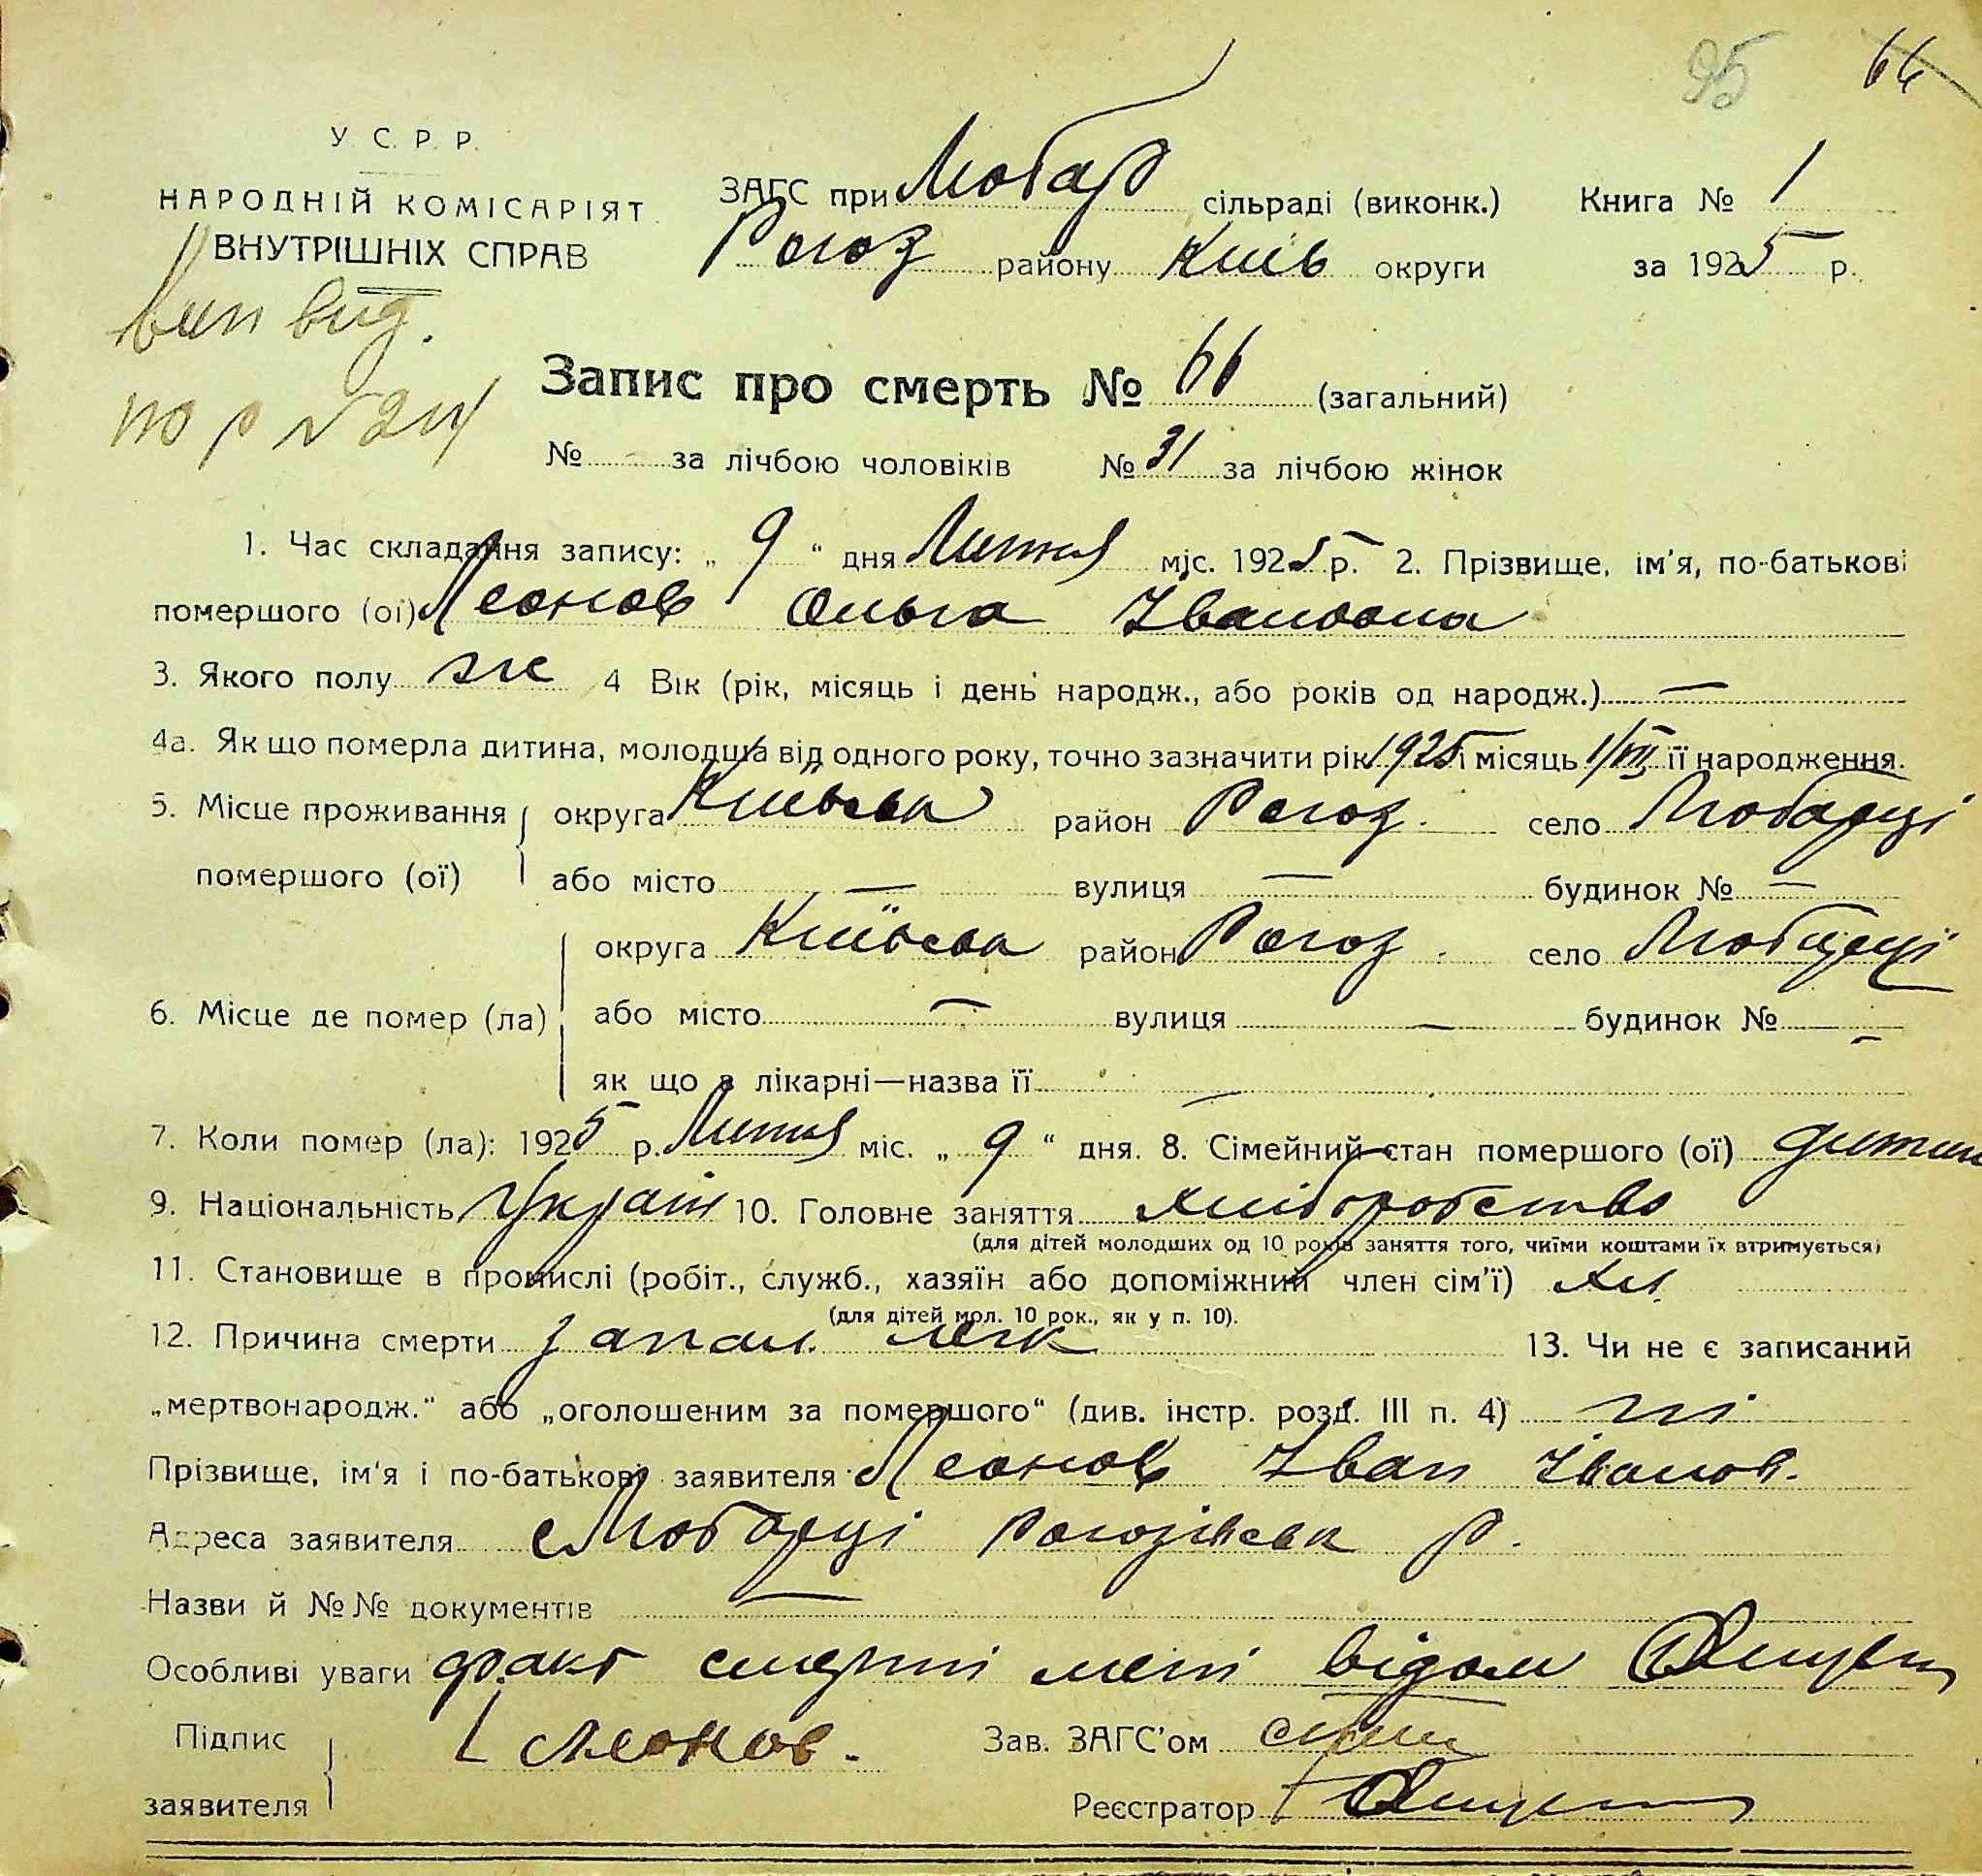 95 66
У. С. Р. Р.
НАРОДНІЙ КОМІСАРІЯТ
ВНУТРІШНІХ СПРАВ
ЗАГС при Любар сільраді (виконк.) Книга № 1
Рогоз району Київ округи за 1925 р.
вид.
Запис про смерть № 66 (загальний)
№ - за лічбою чоловіків № 31 за лічбою жінок
1. Час складання запису: „ 9 “ дня Липня міс. 1925 р. 2. Прізвище, ім'я, по-батькові
помершого (ої) Леонов Ольга Івановна
3. Якого полу ж 4 Вік (рік, місяць і день народж., або років од народж.) —
4а. Як що померла дитина, молодша від одного року, точно зазначити рік 1925 і місяць 1/VII її народження.
5. Місце проживання округа Київська район Рогоз. село Любарці
помершого (ої) або місто — вулиця — будинок № —
округа Київська район Рогоз. село Любарці
6. Місце де помер (ла) або місто — вулиця — будинок № —
як що в лікарні—назва її —
7. Коли помер (ла): 1925 р. Липня міс. „ 9 “ дня. 8. Сімейний стан помершого (ої) дитин
9. Національність Україн 10. Головне заняття хліборобство
(для дітей молодших од 10 років заняття того, чиїми коштами їх втримується)
11. Становище в промислі (робіт., служб., хазяїн або допоміжний член сім'ї) хл.
(для дітей мол. 10 рок., як у п. 10).
12. Причина смерти запал. легк 13. Чи не є записаний
„мертвонародж.“ або „оголошеним за помершого“ (див. інстр. розд. III п. 4) ні
Прізвище, ім'я і по-батькові заявителя Леонов Іван Іванов.
Адреса заявителя с Любарці Рогозівськ р.
Назви й №№ документів —
Особливі уваги факт смерти мені відом
Підпис Леонов. Зав. ЗАГС'ом
заявителя Реєстратор